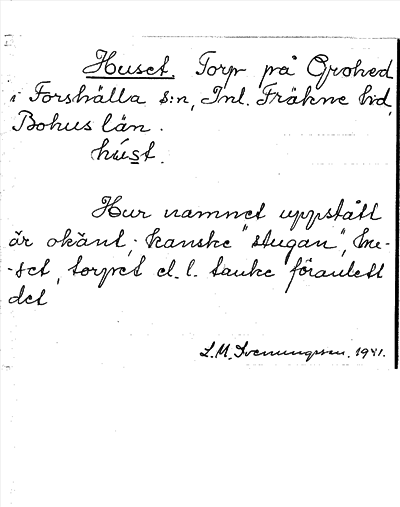 Huset. Torp på Grohed
i Forshälla s:n, Inl. Fräkne hd,
Bohus län.
húst.
Hur namnet uppstått
är okänt; kanske "stugan",
-set, torpet el. l. tanke föranlett
det
L.M. Svenungsson. 1941.